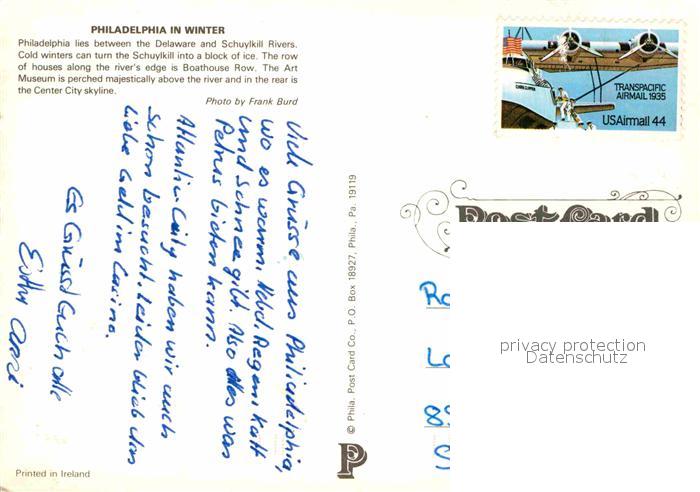 PHILADELPHIA IN WINTER
Philadelphia lies between the Delaware and Schuylkill Rivers.
Cold winters can turn the Schuylkill into a block of ice. The row
of houses along the river's edge is Boathouse Row. The Art
Museum is perched majestically above the river and in the rear is
the Center City skyline.
Photo by Frank Burd
Viele Grüsse aus Philadelphia,
wo es warm, Nebel, Regen, kalt
und Schnee gibt. Also alles was
Petrus bieten kann.
Atlantic City haben wir auch
schon besucht. Leider blieb das
liebe Geld im Casino.
Es Grüsst Euch alle
© Phila. Post Card Co., P.O. Box 18927, Phila., Pa. 19119
P
Printed in Ireland
TRANSPACIFIC
AIRMAIL 1935
USAirmail 44
Post Card
Ro
privacy protection
Datenschutz